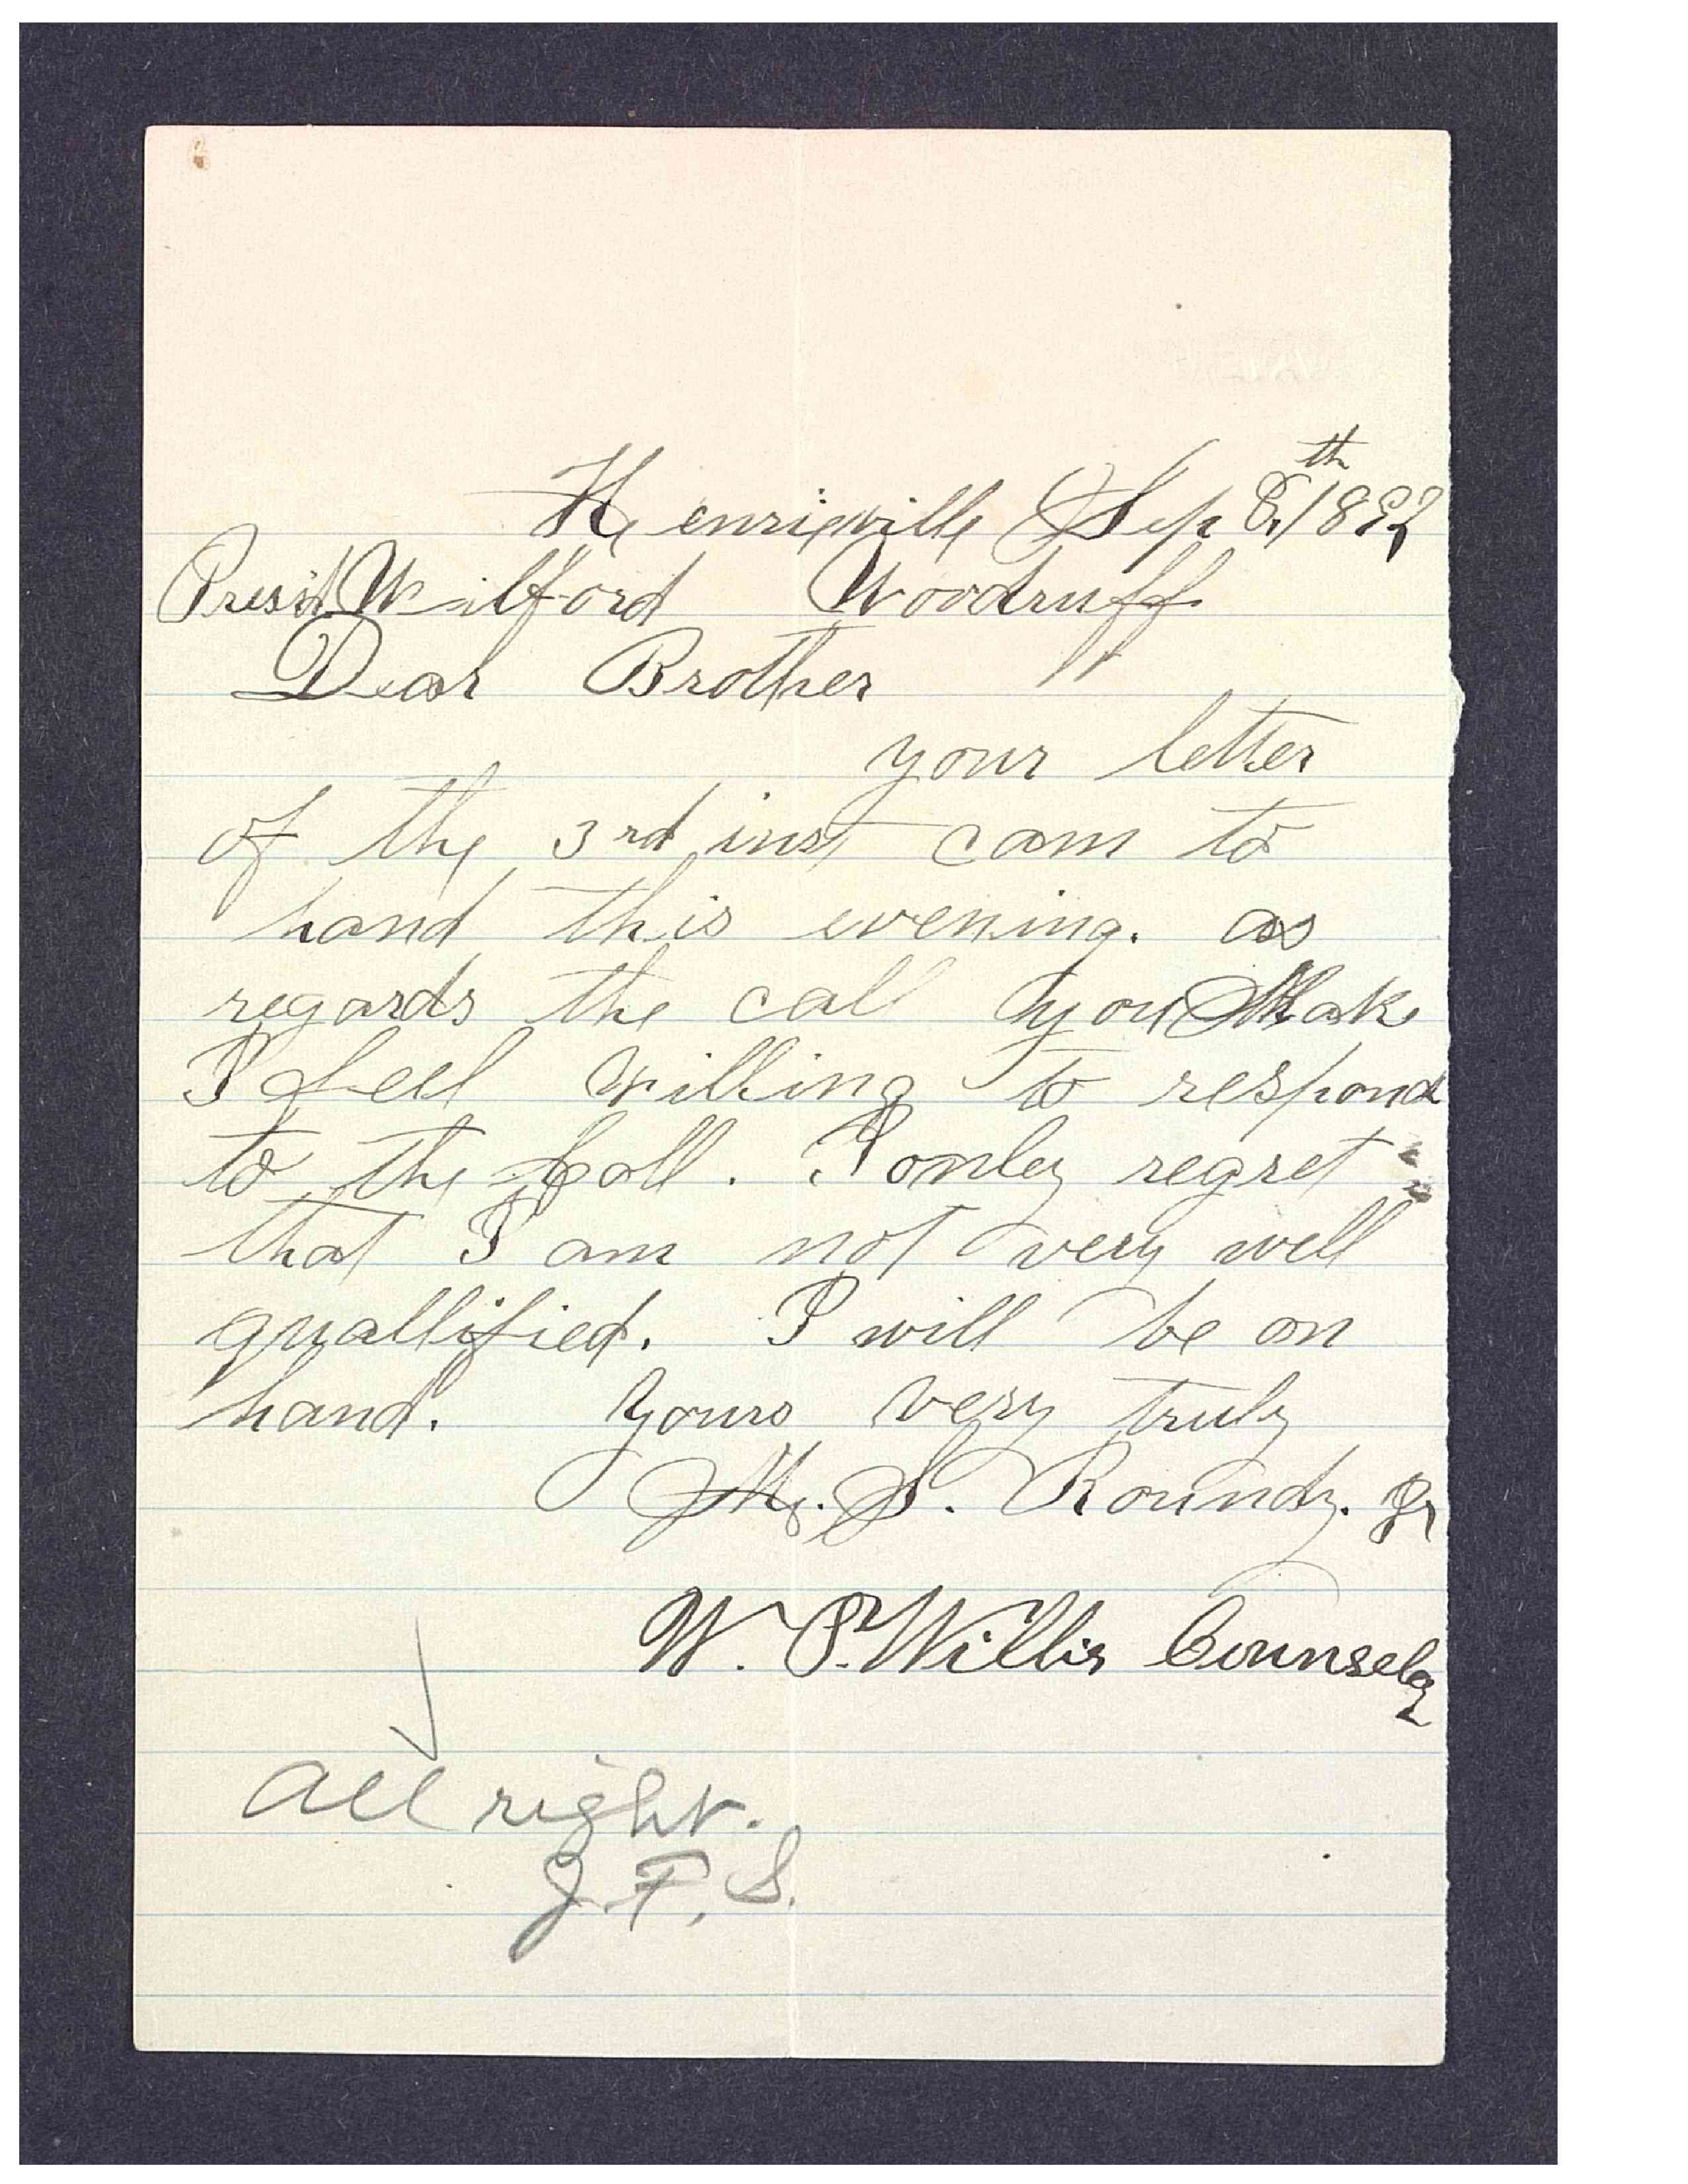 Henrieville Sep 8th, 1892
Pres't Wilford Woodruff
Dear Brother
your letter
of the 3rd inst cam to
hand this evening. as
regards the call you Make
I feel willing to respond
to the Call. I only regret
that I am not very well
quallified. I will be on
hand. Yours very truly
M. S. Roundy. Jr
W. P. Willis Counseler
all right.
J. F. S.